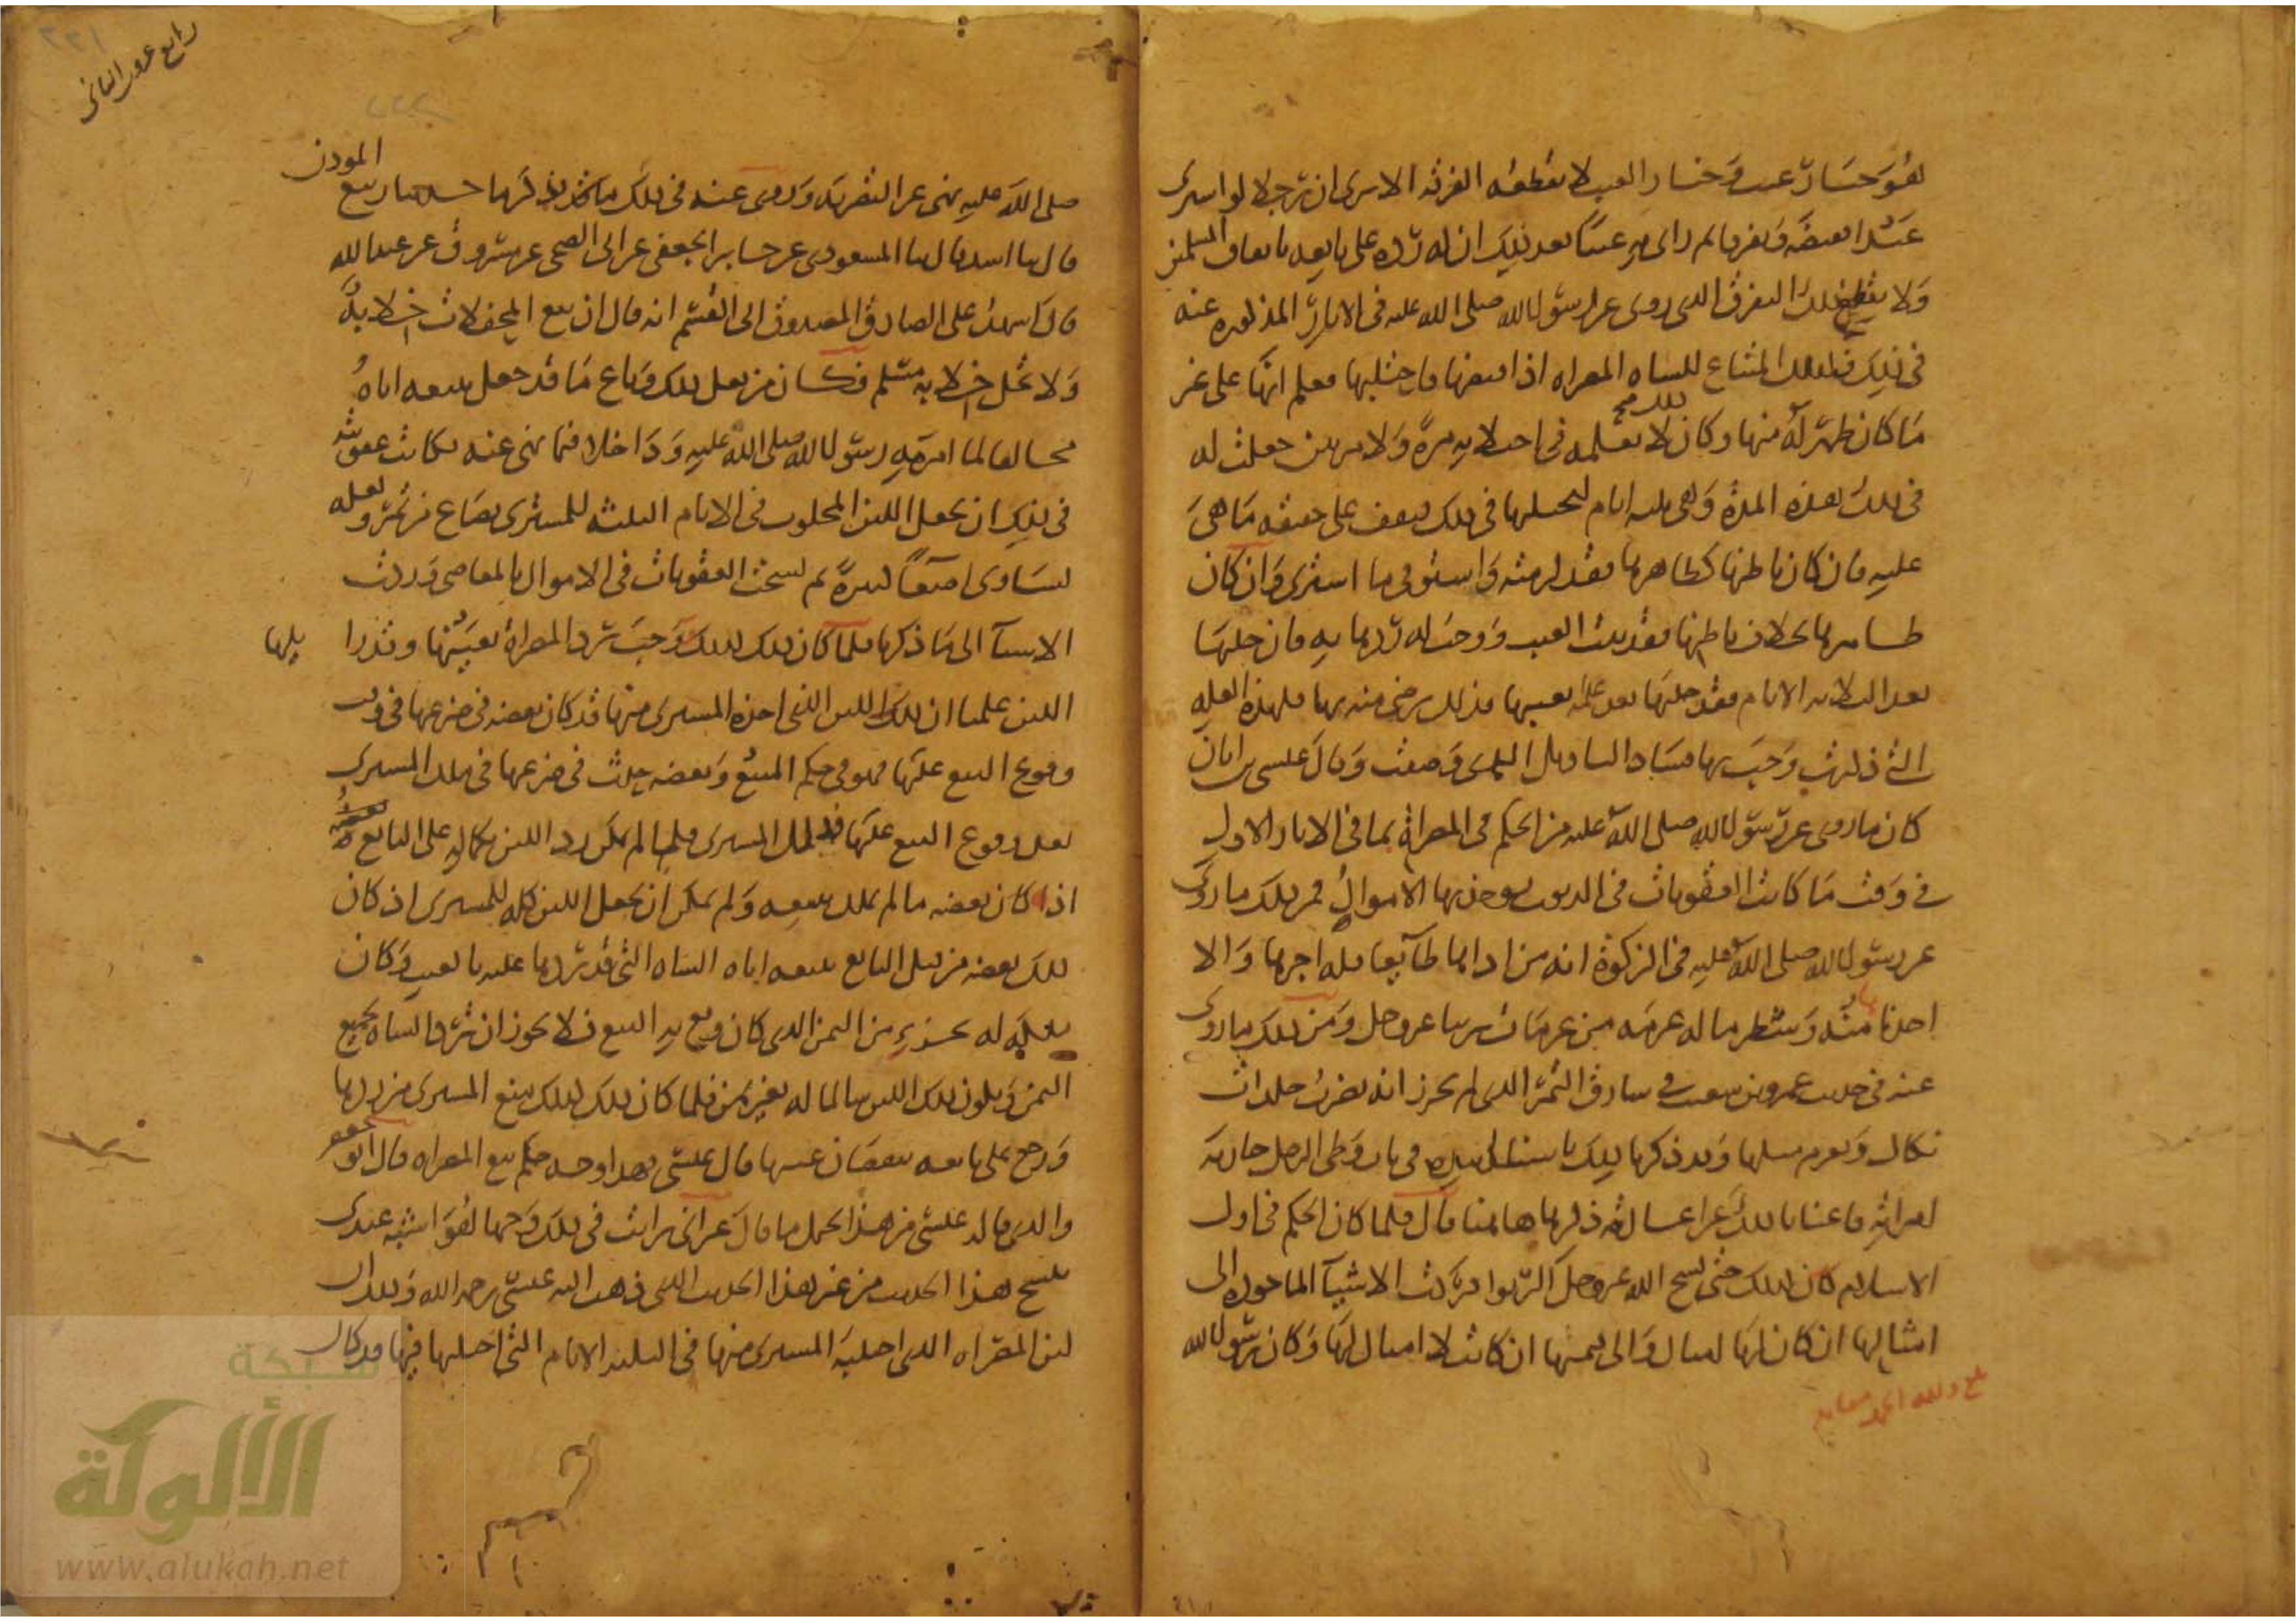 هو خيار عيب وخيار العيب لا يقطعه الفرقة الا يرى ان رجلا لو اشترى
عبدا فقبضه وتفرقا ثم راى به عيبا بعد ذلك ان له رده على بايعه باتفاق المسلمين
ولا يقطع ذلك التفرق الذي روي عن رسول الله صلى الله عليه في الاثار المذكورة عنه
في ذلك فكذلك المبتاع للشاه المصراه اذا قبضها فاحتلبها فعلم انها على غير
ما كان ظهر له منها وكان ذلك لا يعلمه في احتلابه مرة ولا مرتين جعلت له
في ذلك هذه المدة وهي ثلثه ايام ليحلبها في ذلك فيقف على حقيقه ما هي
عليه فان كان باطنها كظاهرها فقد لزمته واستوفى ما اشترى وان كان
ظاهرها بخلاف باطنها فقد ثبت العيب ووجب له ردها به فان حلبها
بعد الثلاثه الايام فقد حلبها بعد علمه بعيبها فذلك رضى منه بها فلهذه العله
التي ذكرت وجب بها فساد التاويل الذي وصفت وقال عيسى بن ابان
كان ما روي عن رسول الله صلى الله عليه من الحكم في المصراة بما في الاثار الاول
في وقت ما كانت العقوبات في الذنوب يوخذ بها الاموال فمن ذلك ما روي
عن رسول الله صلى الله عليه في الزكوة انه من اداها طايعا فله اجرها والا
اخذناها منه وشطر ماله عزمه من عزمات ربنا عز وجل ومن ذلك ما روي
عنه في حديث عمرو بن شعيب في سارق الثمر الذي لم يحرز انه يضرب جلدات
نكال ويغرم مثليها وقد ذكرنا ذلك باسناده في باب وطى الرجل جارية
امراته فاغنانا ذلك عن اعادة ذكرها هاهنا قال فلما كان الحكم في اول
الاسلام كان كذلك حتى نسخ الله عز وجل الربوا فردت الاشيآ الماخوذه الى
امثالها ان كان لها امثال والى قيمتها ان كانت لا امثال لها وكان رسول الله
بلغ ولله الحمد مقابله
صلى الله عليه نهى عن التصريه وروي عنه في ذلك ما حدثنا ربيع المؤذن
قال ثنا اسد قال ثنا المسعودي عن جابر الجعفي عن ابي الضحى عن مسروق عن عبد الله
قال اشهد على الصادق المصدوق ابي القسم انه قال ان بيع المحفلات خلابة
ولا تحل خلابة مسلم فكان من فعل ذلك وباع ما قد جعل ببيعه اياه
مخالفا لما امر به رسول الله صلى الله عليه وداخلا فيما نهى عنه فكانت عقوبته
في ذلك ان يجعل اللبن المحلوب في الايام الثلثه للمشتري بصاع من تمر ولعله
يساوي اصعا كثيرة ثم نسخت العقوبات في الاموال بالمعاصي وردت
الاشيآ الى ما ذكرنا فلما كان ذلك كذلك ووجب رد المصراة بعينها وقد زايلها
اللبن علمنا ان ذلك اللبن الذي اخذه المشتري منها قد كان بعضه في ضرعها في وقت
وقوع البيع عليها فهو في حكم المبيع وبعضه حدث في ضرعها في ملك المشتري
بعد وقوع البيع عليها فذلك للمشتري فلما لم يكن رد اللبن بكماله على البايع
اذا كان بعضه ما لم يملك ببيعه ولم يمكن ان يجعل اللبن كله للمشتري اذ كان
ملك بعضه من قبل البايع ببيعه اياه الشاه التي قد ردها عليه بالعيب وكان
ملكه له بجزء من الثمن الذي كان وقع به البيع فلا يجوز ان ترد الشاه بجميع
الثمن ويكون ذلك اللبن سالما له بغير ثمن فلما كان ذلك كذلك منع المشتري من ردها
ورجع على بايعه بنقصان عيبها قال عيسى فهذا وجه حكم بيع المصراه قال ابو جعفر
والذي قاله عيسى من هذا يحتمل ما قال غير اني رايت في ذلك وجها هو اشبه عندي
بنسخ هذا الحديث من غير هذا الحديث الذي ذهب اليه عيسى رحمه الله وذلك ان
لبن المصراه الذي احتلبه المشتري منها في الثلثه الايام التي احتلبها فيها قد كان
شبكة
الألوكة
www.alukah.net